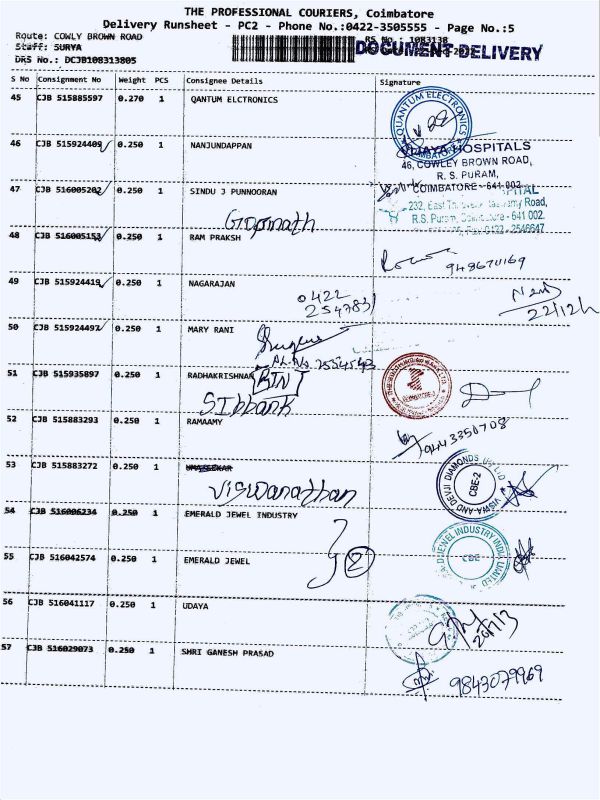 THE PROFESSIONAL COURIERS, Coimbatore
Delivery Runsheet - PC2 - Phone No.:0422-3505555 - Page No.:5
Route: COWLY BROWN ROAD
Staff: SURYA
DRS No.: DCJB108313805
RS No.: 1083138
DOCUMENT DELIVERY
S No Consignment No Weight PCS Consignee Details Signature
45 CJB 515885597 0.270 1 QANTUM ELCTRONICS
QUANTUM ELECTRONICS
COIMBATORE
46 CJB 515924409 0.250 1 NANJUNDAPPAN
VIJAYA HOSPITALS
46, COWLEY BROWN ROAD,
R. S. PURAM,
COIMBATORE - 641 002.
47 CJB 516005202 0.250 1 SINDU J PUNNOORAN
232, East
Road,
R.S. Puram, - 641 002.
2546647
Gopinath
48 CJB 516005153 0.250 1 RAM PRAKSH
948670169
49 CJB 515924419 0.250 1 NAGARAJAN
0422
2547831
22/12/
50 CJB 515924492 0.250 1 MARY RANI
2554543
51 CJB 515935897 0.250 1 RADHAKRISHNAN
SIbbank
52 CJB 515883293 0.250 1 RAMAAMY
9443350708
53 CJB 515883272 0.250 1
Viswanathan
VISWA AND DEVJI DIAMONDS
CBE-2
54 CJB 516006234 0.250 1 EMERALD JEWEL INDUSTRY
2
JEWEL INDUSTRY INDIA LIMITED
CBE
55 CJB 516042574 0.250 1 EMERALD JEWEL
56 CJB 516041117 0.250 1 UDAYA
57 CJB 516029073 0.250 1 SHRI GANESH PRASAD
9843079969